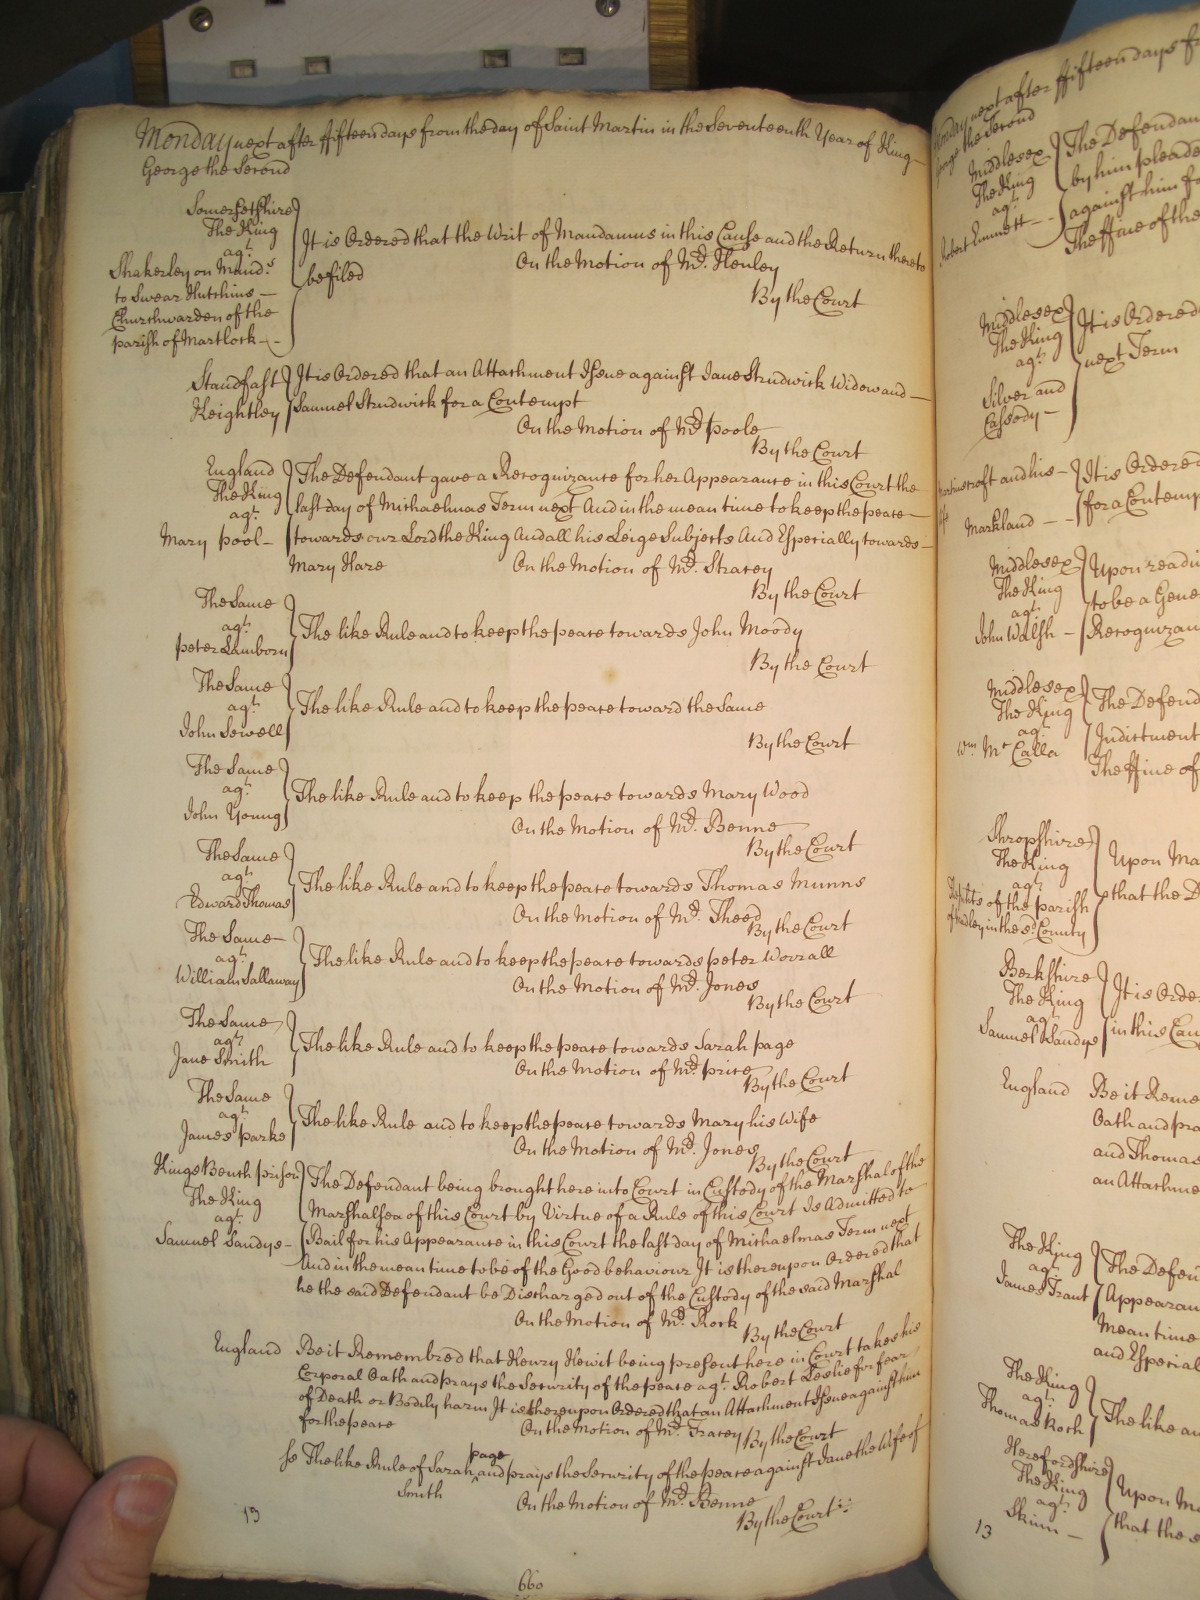 Monday next after ffifteen days from the day of Saint Martin in the Seventeenth Year of King
George the Second
Somersetshire
The King
agt.
Shakerley on Mand.s
to Swear Hutchins
Churchwarden of the
parish of Martlock
It is Ordered that the Writ of Mandamus in this Cause and the Return thereto
be filed
On the Motion of Mr. Henley
By the Court
Standfast
Keightley
It is Ordered that an Attachment Issue against Jane Strudwick Widow and
Samuel Strudwick for a Contempt
On the Motion of Mr. poole
By the Court
England
The King
agt.
Mary pool
The Defendant gave a Recognizance for her Appearance in this Court the
last day of Michaelmas Term next And in the mean time to keep the peace
towards our Lord the King And all his Leige Subjects And Especially towards
Mary Hare
On the Motion of Mr. Stracey
By the Court
The Same
agt.
peter Lamborn
The like Rule and to keep the peace towards John Moody
By the Court
The Same
agt.
John Sewell
The like Rule and to keep the peace toward the Same
By the Court
The Same
agt.
John Young
The like Rule and to keep the peace towards Mary Wood
On the Motion of Mr. Benne
By the Court
The Same
agt.
Edward Thomas
The like Rule and to keep the peace towards Thomas Munns
On the Motion of Mr. Theed
By the Court
The Same
agt.
William Sallaway
The like Rule and to keep the peace towards peter Worrall
On the Motion of Mr. Jones
By the Court
The Same
agt.
Jane Smith
The like Rule and to keep the peace towards Sarah page
On the Motion of Mr. price
By the Court
The Same
agt.
James parke
The like Rule and to keep the peace towards Mary his Wife
On the Motion of Mr. Jones
By the Court
Kings Bench prison
The King
agt.
Samuel Sandys
The Defendant being brought here into Court in Custody of the Marshal of the
Marshalsea of this Court by Virtue of a Rule of this Court Is Admitted to
Bail for his Appearance in this Court the last day of Michaelmas Term next
And in the mean time to be of the Good behaviour It is thereupon Ordered that
he the said Defendant be Discharged out of the Custody of the said Marshal
On the Motion of Mr. Rock
By the Court
England Be it Remembred that Henry Hewit being present here in Court takes his
Corporal Oath and prays the Security of the peace agt. Robert Leslie for fear
of Death or Bodily harm It is thereupon Ordered that an Attachment Issue against him
for the peace
On the Motion of Mr. Tracey
By the Court
ss The like Rule of Sarah page and prays the Security of the peace against Jane the Wife of
Smith
On the Motion of Mr. Benne
By the Court
13
660
Monday next after ffifteen days
George the Second
Middlesex
The King
agt.
Robert Emmett
The Defendan
by him pleade
against him fo
The ffine of the
Middlesex
The King
agt.
Silver and
Cassody
It is Ordered
next Term
and his
Markland
It is Ordered
for a Contemp
Middlesex
The King
agt.
John Walsh
Upon readi
to be a Gene
Recognizan
Middlesex
The King
agt.
Wm. Mc Calla
The Defend
Indictment
The ffine of
Shropshire
The King
agt.
of the parish
in the sd. County
Upon Ma
that the D
Berkshire
The King
agt.
Samuel Sandys
It is Orde
in this Cau
England Be it Reme
Oath and pra
and Thomas
an Attachme
The King
agt.
James Trant
The Defen
Appearan
Mean time
and Especial
The King
agt.
Thomas Roch
The like an
Herefordshire
The King
agt.
Skinn
Upon Mo
that the s
13